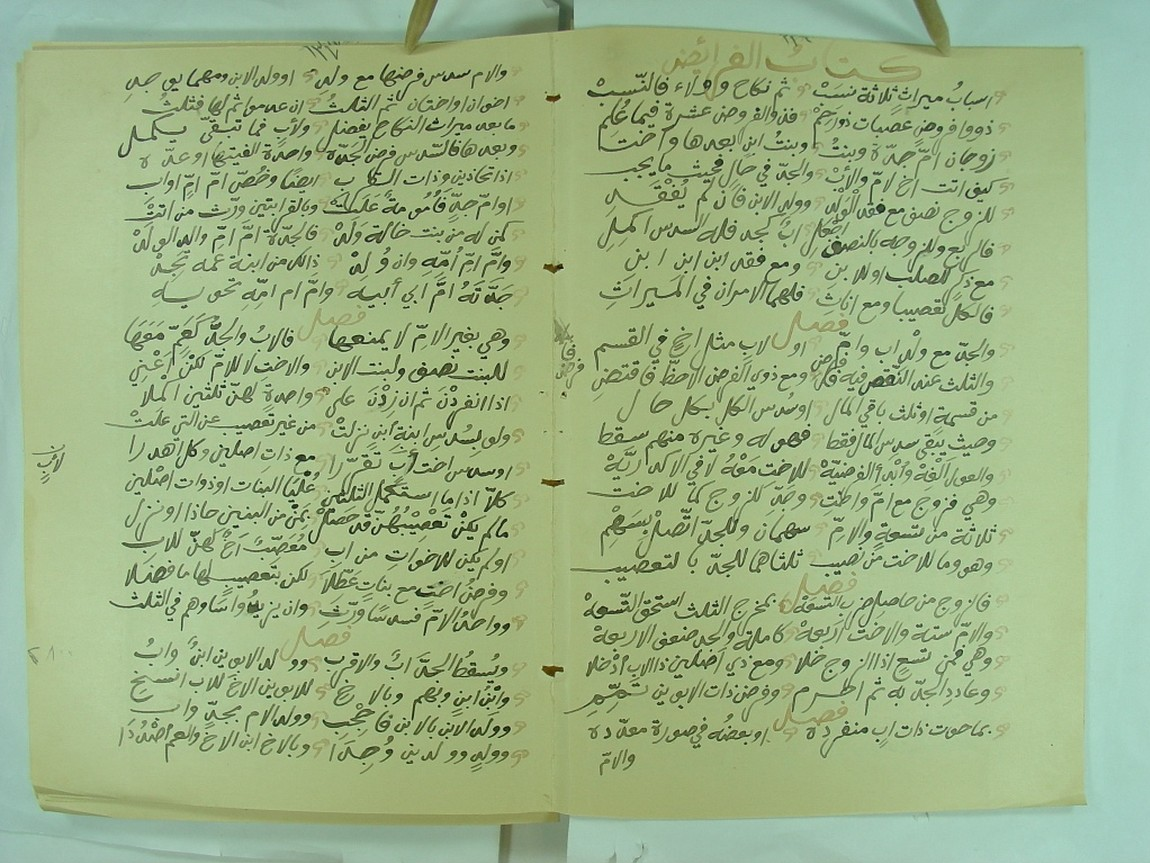 كتاب الفرائض
اسباب ميراث ثلاثة نسب ثم نكاح وولاء فالنسب
ذووا فروض عصبات ذو رحم فذو الفروض عشرة فيما علم
زوجان ام جدة وبنت وبنت ابن بعدها واخت
كيف اتت اخ لام والاب والجد في حال فحيث ما يجب
للزوج نصف مع فقد الولد وولد الابن فان لم يفقد
فالربع وللزوجه بالنصف اب كجد فله السدس اكمل
مع ذكر للصلب او للابن ومع فقد ابن ابن ابن
فالكل تعصيبا ومع اناث فلهما الامران في الميراث
فصل
والجد مع ولد اب وام او لاب مثل اخ في القسم
والثلث عند النقص فيه فرض ومع ذوي الفرض الاحظ فاقتض
من قسمة او ثلث باقي المال او سدس الكل بكل حال
وحيث يبقى سدس المال فقط فهو له وغيره منهم سقط
والعول للاخت معه لا في الاكدرية
وهي فزوج مع ام واخت وجد للزوج كما للاخت
ثلاثة من تسعة وللام سهمان وللجد اتصل بسهم
وهو وما للاخت من نصيب ثلثاهما للجد بالتعصيب
فصل
فالزوج من حاصل ضرب التسعة بمخرج الثلث استحق التسعة
والام ستة والاخت اربعة كاملة والجد ضعف الاربعة
وهي فمن تسع اذا الزوج خلا ومع ذي اصلين ذا الاب ادخلا
وعادد الجد به ثم احرم وفرض ذات الابوين تمم
فصل
بما حوت ذات اب منفردة او بعضه في صورة معددة
والام
والام سدس فرضها مع ولد او ولد الابن ومهما يوجد
اخوان او اختان ثم الثلث ان عدموا ثم لها فثلث
ما بعد ميراث النكاح يفضل ولاب فما تبقى يكمل
وبعدها فالسدس فرض الجدة واحدة الفيتها او عدة
اذا تحاذين وذات الاب ايضا وخص ام ام او اب
او ام جد فامومة علت وبالقرابتين ورث من اتت
كمن له من بنت خالة ولد فالجدة ام ام والد الولد
وام ام امه وان ولد ذلك من ابنة عمه تجد
جدته ام ابي ابيه وام ام امه تحويه
فصل
وهي بغير الام لا يمنعها فالاب والجد كعم معها
للبنت نصف ولبنت الابن والاخت لا للام لكن اعني
اذا انفردن ثم ان زدن على واحدة لهن ثلثين اكملا
ولو بسدس ابنة ابن نزلت من غير تعصيب عن التي علت
او سدس اخت اب تقررا مع ذات اصلين وكل اهدرا
كلا اذا ما استكمل الثلثين عليا البنات او ذوات اصلين
ما لم يكن تعصيبهن قد حصل بمن من البنين حاذا او نزل
او لم يكن للاخوات من اب معصبا اخ لهن للاب
وفرض اخت مع بنات عطلا لكن بتعصيب لها ما فضلا
وواحد الام فسدسا ورث وان يزيدوا ساوهم في الثلث
فصل
ويسقط الجد اب والاقرب وولد الابوين ابن واب
وابن ابن وبهم وبالاخ للابوين الاخ للاب انسخ
وولد الابن بالابن فاحجب وولد الام بجد واب
وولد وولدين وجدا وبالاخ ابن الاخ والعم اصددا